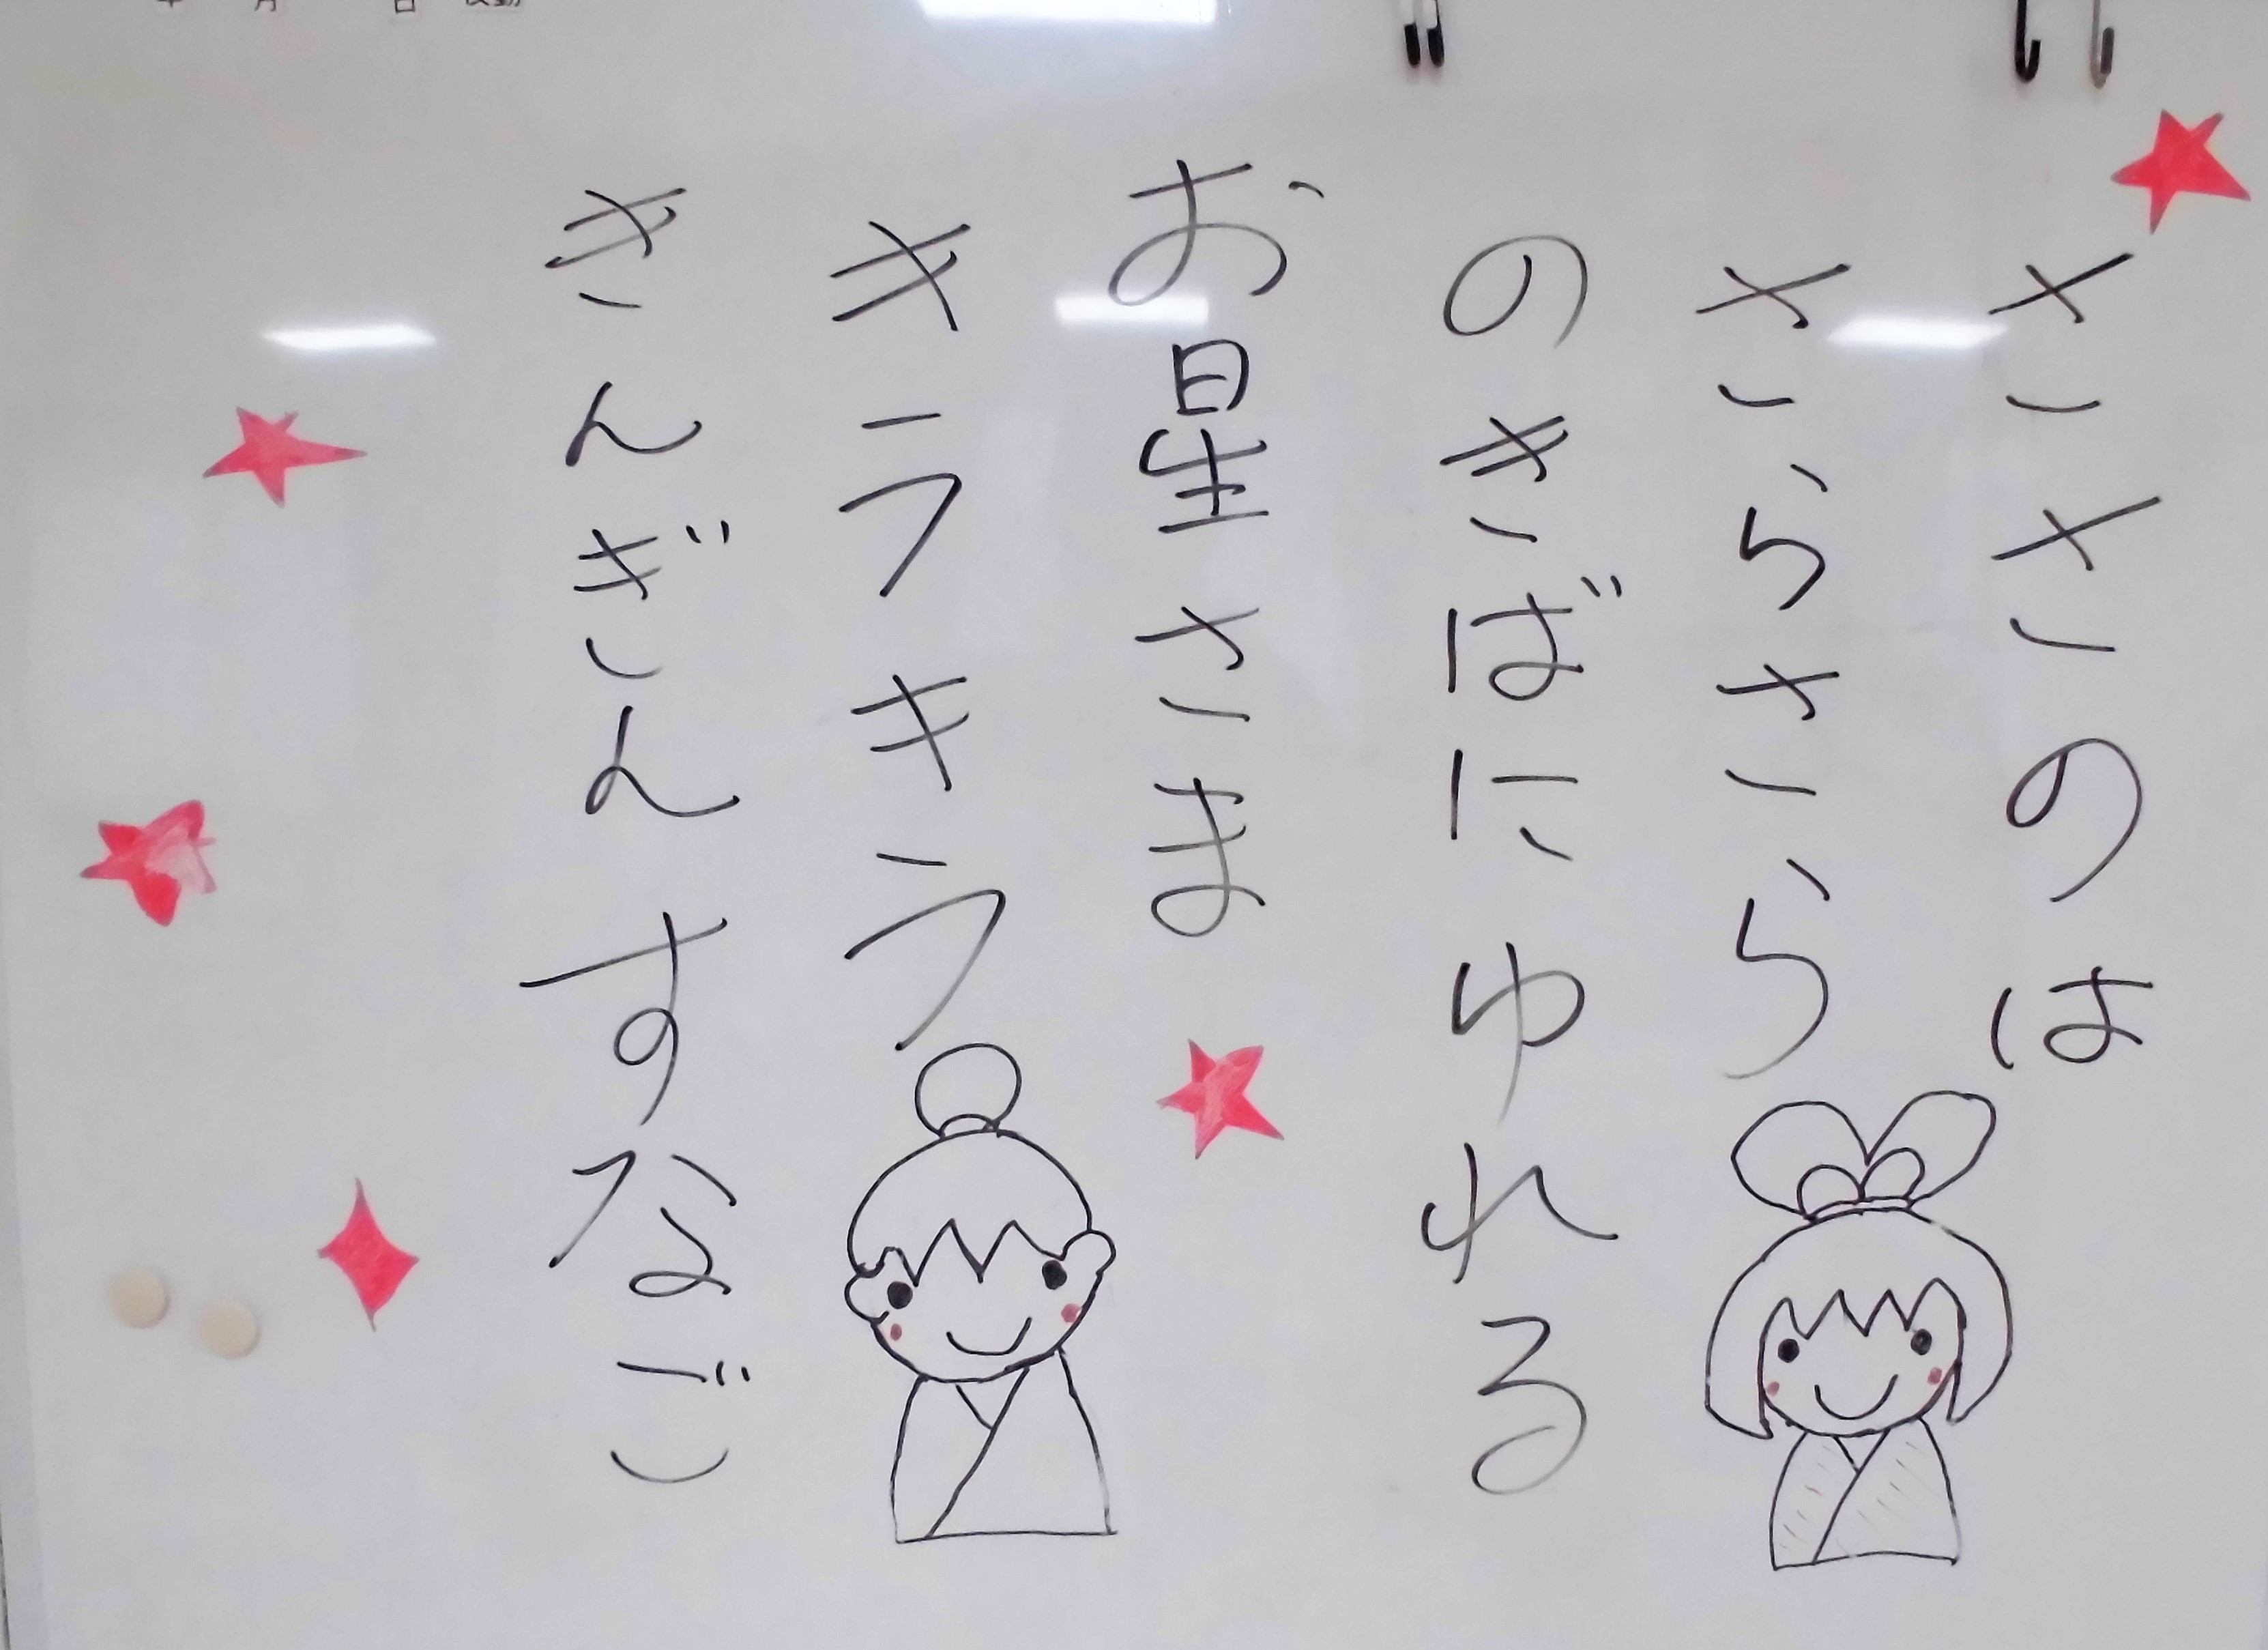 ささのは
さらさら
のきばにゆれる
お星さま
キラキラ
きんぎんすなご
年 月 日